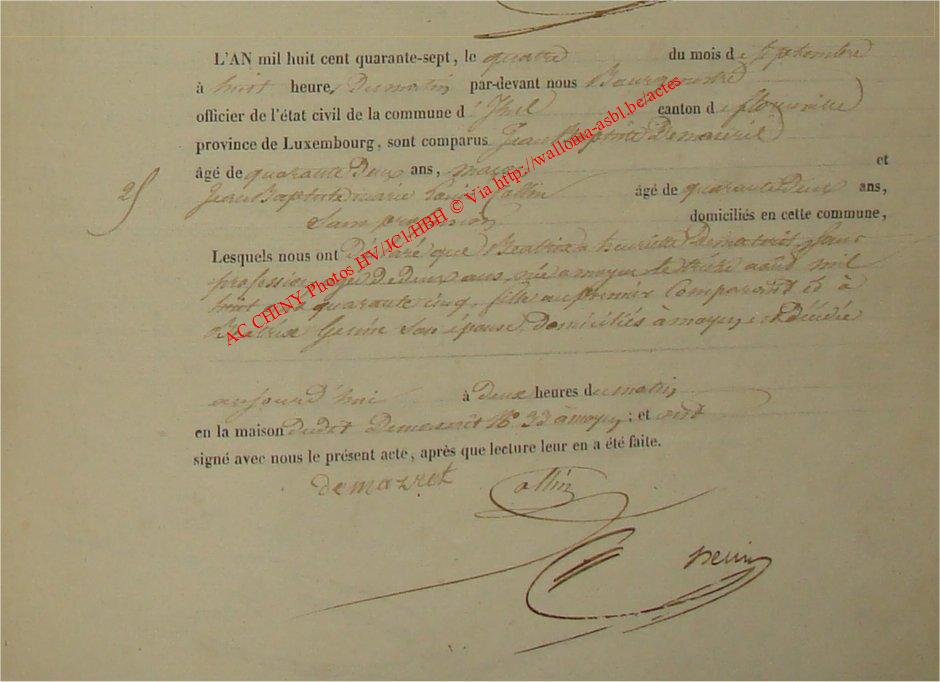 L'AN mil huit cent quarante-sept, le quatre du mois de septembre
à huit heures du matin par-devant nous Bourgmestre
officier de l'état civil de la commune d'Izel, canton de florenville
province de Luxembourg, sont comparus Jean Baptiste Demazerit
âgé de quarante deux ans, et
Jean Baptiste Collin âgé de quarante deux ans,
25
Sans profession domiciliés en cette commune,
Lesquels nous ont Déclaré que Beatrix henriette Demazerit, Sans
profession agée de Deux ans, née a moyen le treize août mil
huit cent quarante cinq, fille au premier Comparant et à
Beatrix Genin Son épouse, Domiciliés à moyen, est Décédée
aujourd'hui à Deux heures du matin
en la maison dudit Demazerit No 33 à moyen ; et ont
signé avec nous le présent acte, après que lecture leur en a été faite.
demazret Collin
AC CHINY Photos HV/JCl/HBH © Via http://wallonia-asbl.be/actes